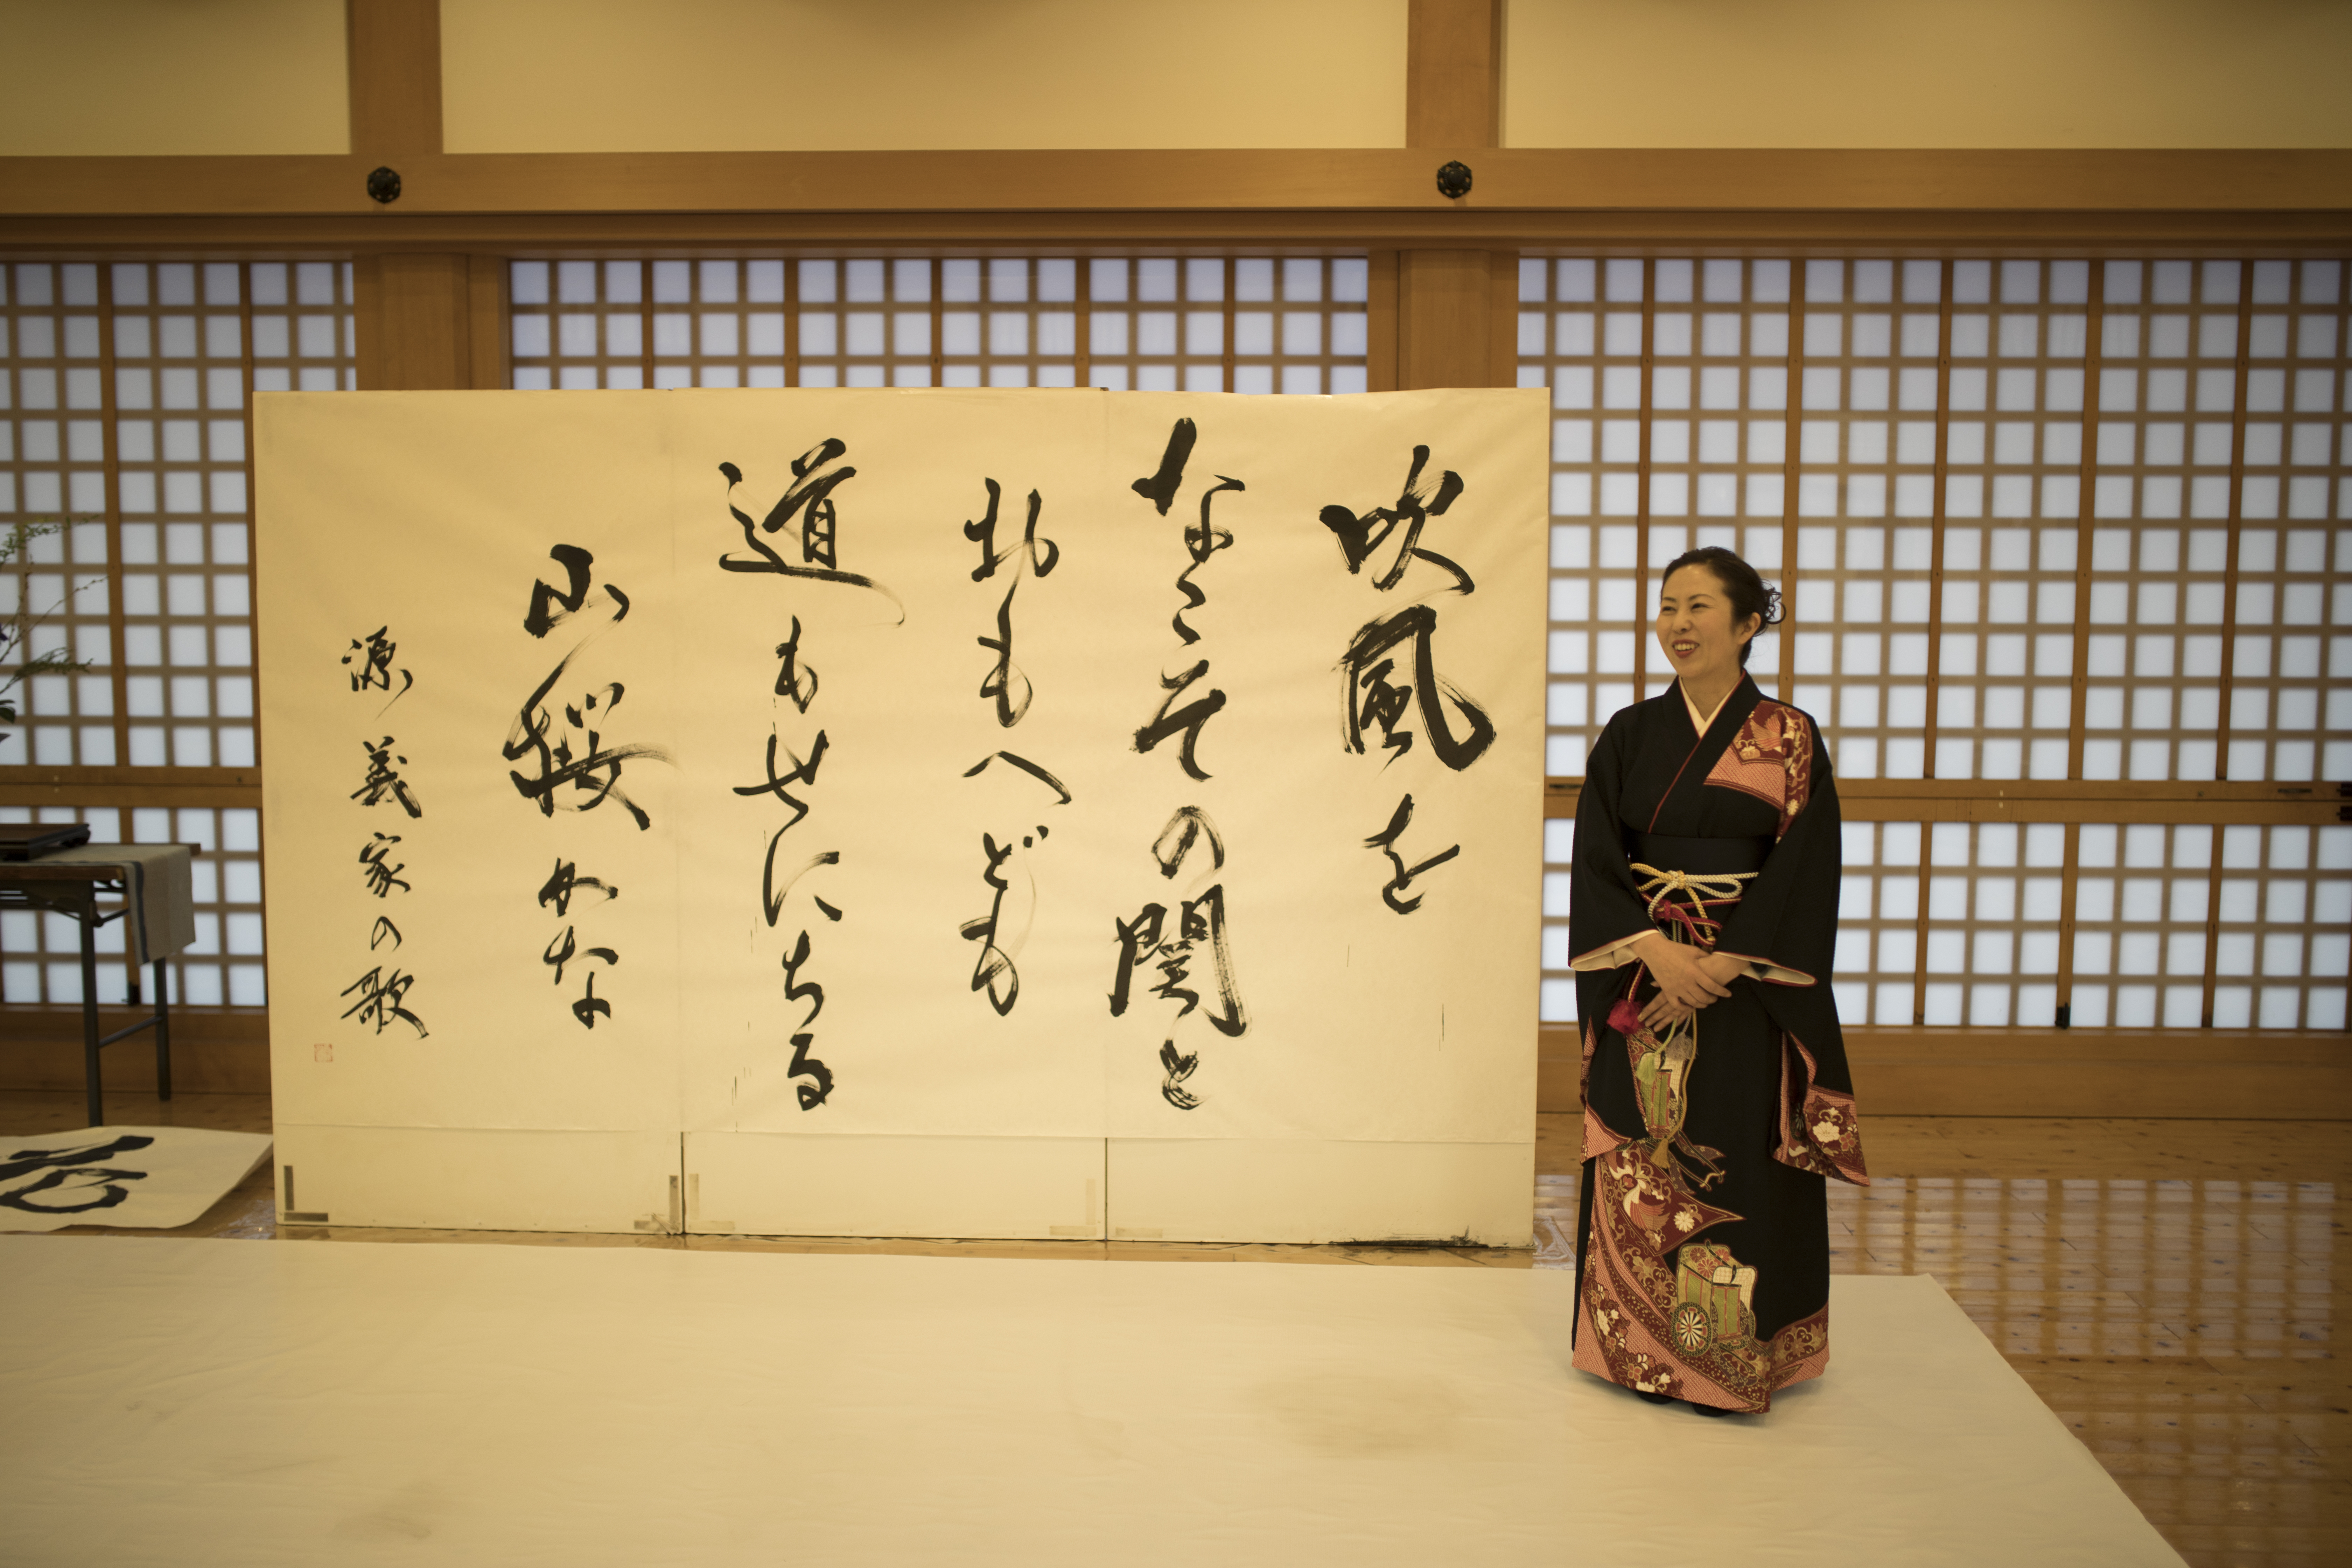 吹風を
なこその関と
おもへども
道もせにちる
山桜かな
源義家の歌